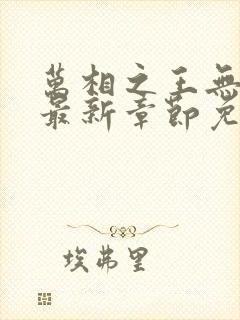 萬相之王無
最新章節免
埃弗里